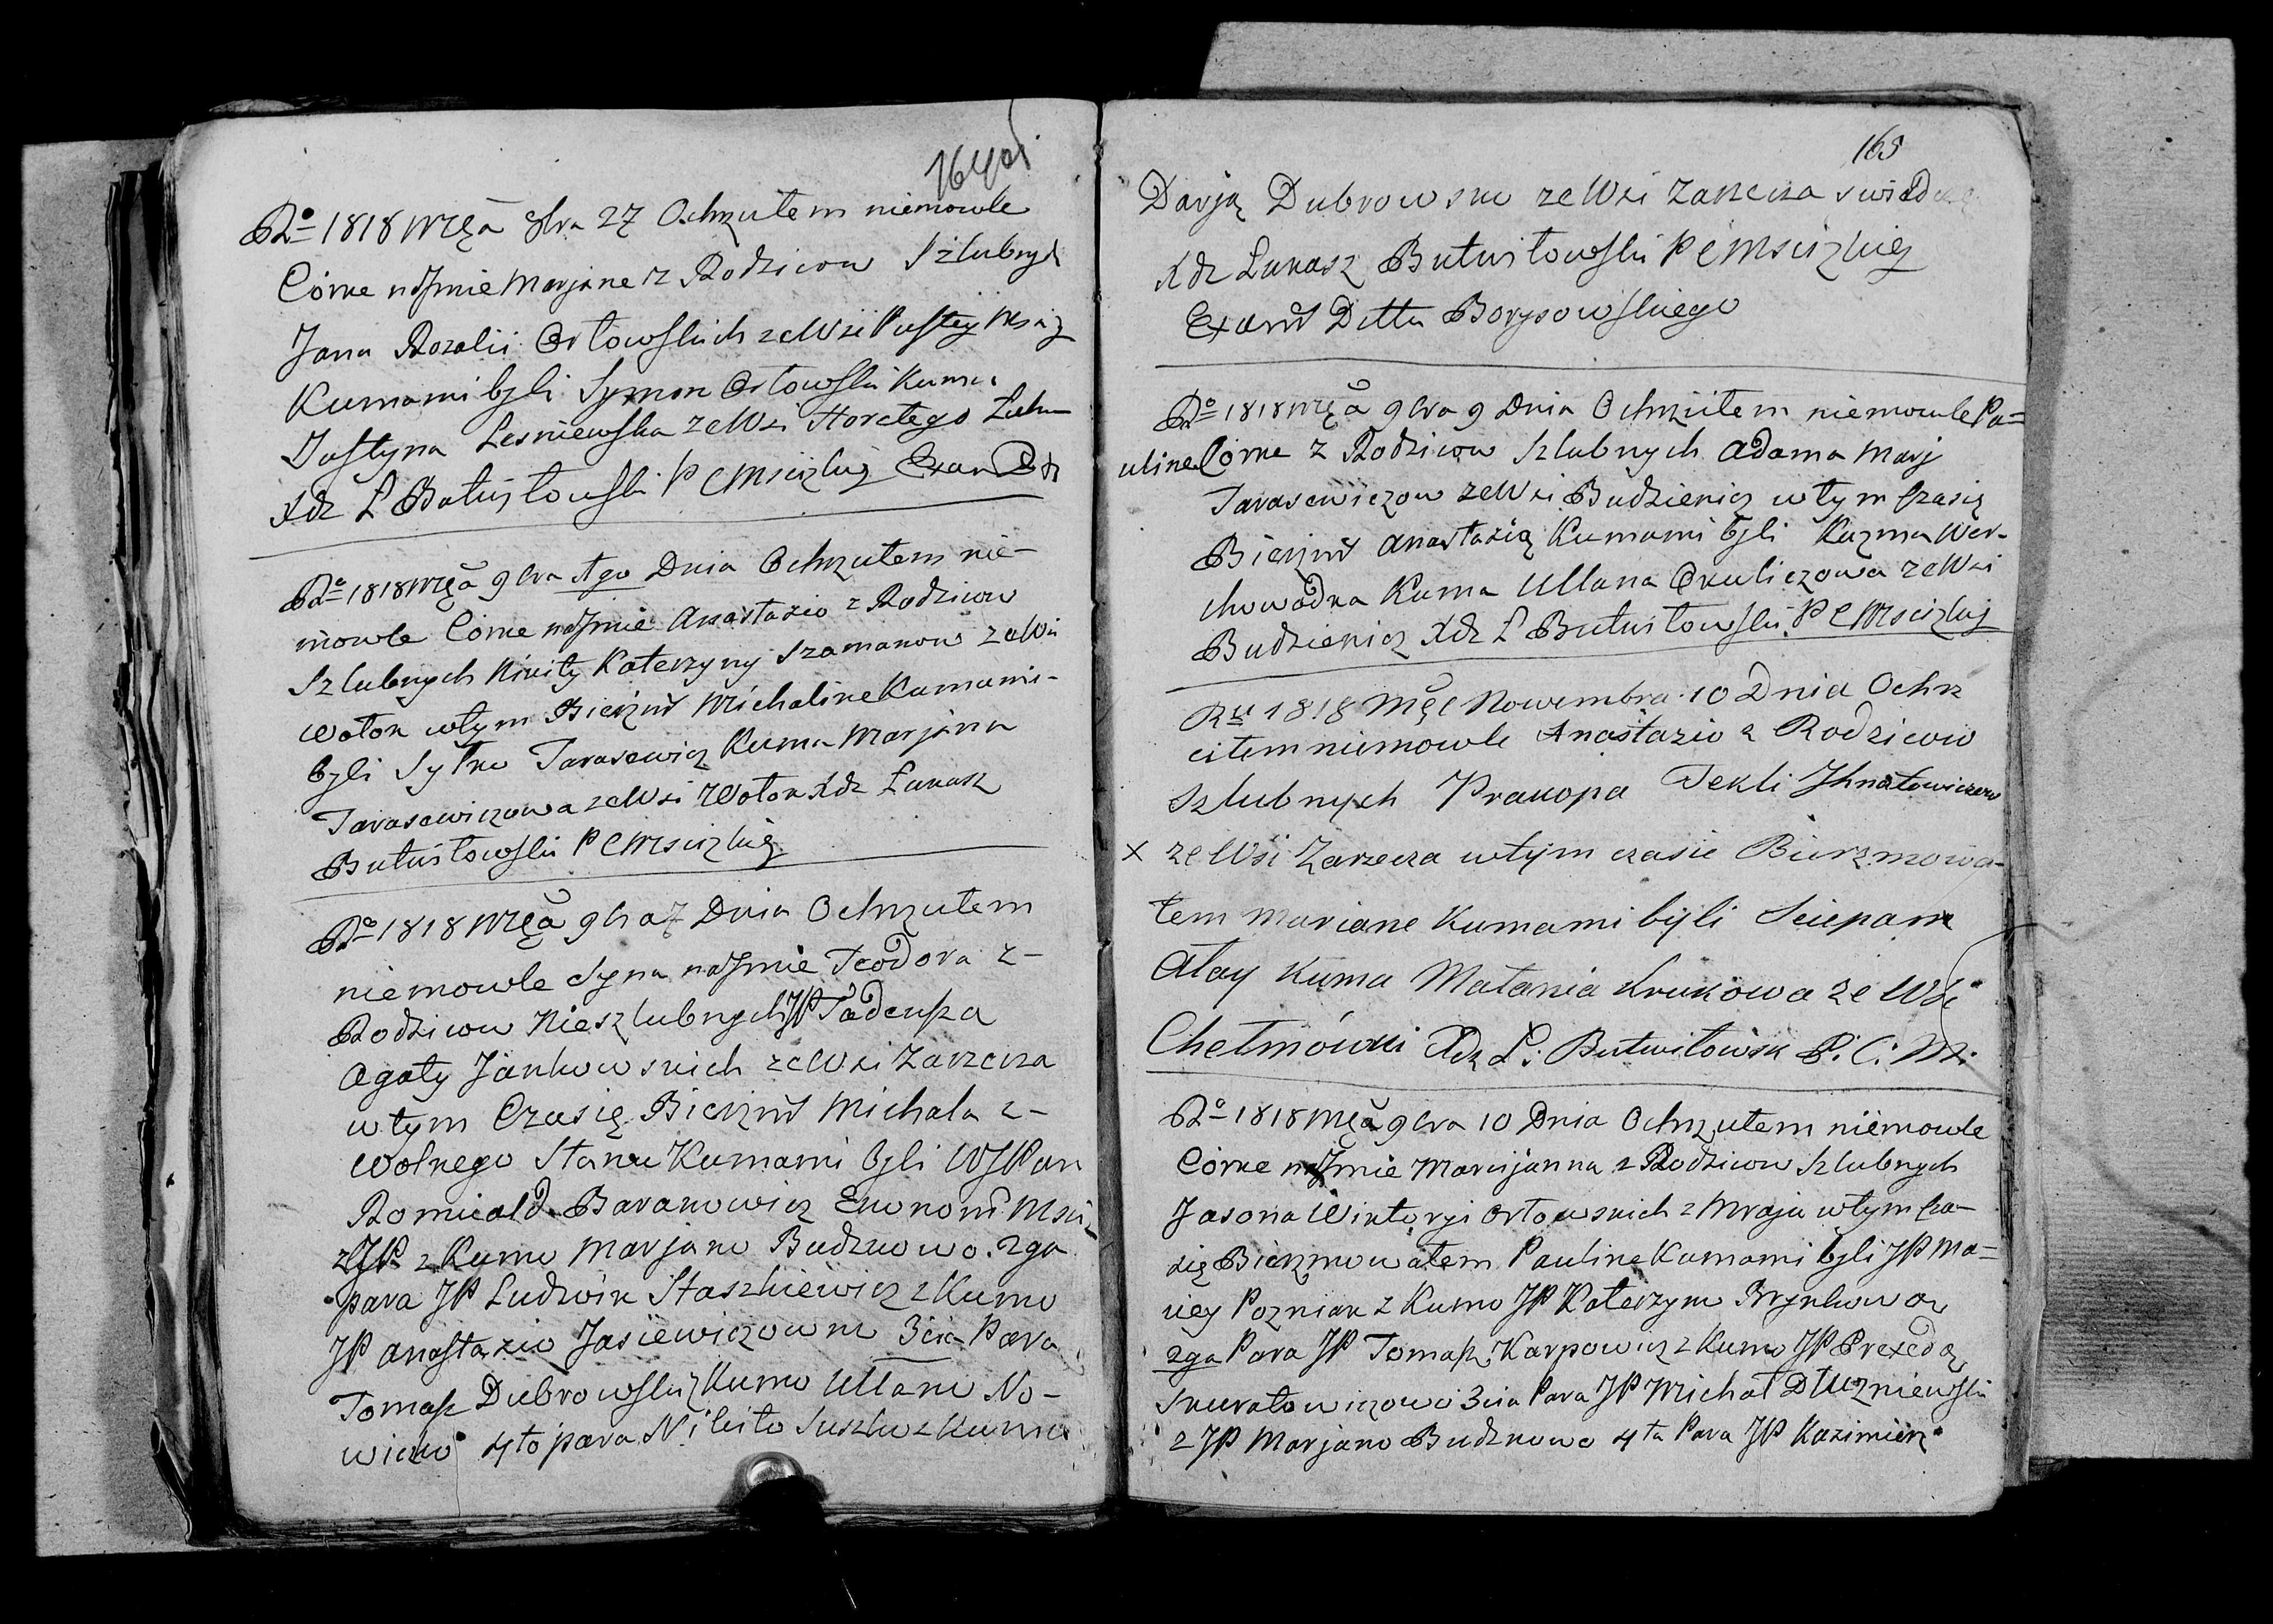 164 od
Ro 1818 Mcą 8bra 27 Ochrzciłem niemowle
Córke na Jmie Marjane z Rodziców Szlubnych
Jana Rozalii Orłowskich ze Wsi Pustey Mściż
Kumami byli Symon Orłowski Kuma
Justyna Lesniewska ze Wsi Horełego
Xdz Ł Butwiłowski P C Mscizki Exam
Ro 1818 Mcą 9bra 1go Dnia Ochrzciłem nie-
mowle Córke na Jmie Anastazio z Rodziców
Szlubnych Nikity Katerzyny Szamanow ze Wsi
Wołok wtym Bierzm Michaline Kumami-
byli Sylwe Tarasewicz Kuma Marjana
Tarasewiczowa ze Wsi Wołok Xdz Łukasz
Butwiłowski P C Mscizkiy
Ro 1818 Mcą 9bra 7 Dnia Ochrzciłem
niemowle Syna na Jmie Teodora z-
Rodzicow Nieszlubnych JP Tadeusza
Agaty Jankowskich ze Wsi Zarzecza
wtym Czasię Bierzm Michala z-
Wolnego Stanu Kumami byli WJPan
Romuald Baranowicz Ekonom Msci
z JP z Kumo Marjano Budzkowo 2ga
para JP Ludwik Staszkiewicz z Kumo
JP Anastazio Jasiewiczowno 3cia Para
Tomasz Dubrowski z Kumo Ullano No-
wicko 4to para Nikito Suszko z Kumo
165
Darją Dubrowsko ze Wsi Zarzecza swiadczę
Xdz Łukasz Butwiłowski P C Mscizkiey
Exam Dttu Borysowskiego
Ro 1818 Mcą 9bra 9 Dnia Ochrzciłem niemowle Pa=
uline Córke z Rodzicow Szlubnych Adama Marj
Tarasewiczow ze Wsi Budzienicz wtym Czasię
Bierzm Anastazię Kumami byli Kuzma Wer-
chowodka Kuma Ullana Okuliczowa ze Wsi
Budzienicz Xdz Ł Butwiłowski P C Mscizkiy
Ru 1818 Mcą Nowembra 10 Dnia Ochrz
ciłem niemowle Anastazio z Rodzicow
Szlubnych Prakopa Tekli Jhnatowiczow
x ze Wsi Zarzecza wtym czasie Bierzmowa-
łem Mariane Kumami byli Sciepan
Ałay Kuma Matania Krukowa ze Wsi
Chełmówki Xdz Ł: Butwiłowsk P: C: M:
Ro 1818 Mcą 9bra 10 Dnia Ochrzciłem niemowle
Córke na Jmie Marcijanna z Rodzicow Szlubnych
Jasona Wiktoryi Orłowskich z Mraja wtym Cza-
się Bierzmowałem Pauline Kumami byli JP Ma=
ciey Pozniak z Kumo JP Katerzyno
2ga Para JP Tomasz Karpowicz z Kumo JP Prexedą
Skuratowiczowo 3cia Para JP Michał Dłuzniewski
z JP Marjano Budzkowo 4ta Para JP Kazimierz